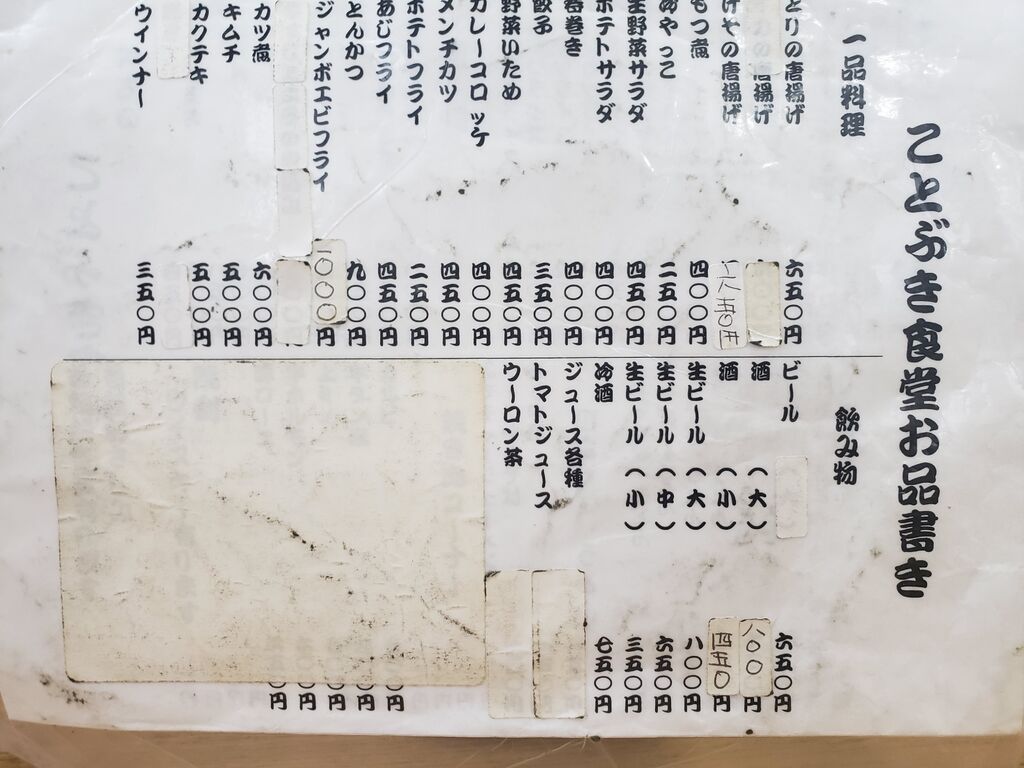 ことぶき食堂お品書き
一品料理
とりの唐揚げ
の唐揚げ
げその唐揚げ
もつ煮
冷やっこ
生野菜サラダ
ポテトサラダ
春巻き
餃子
野菜いため
カレーコロッケ
メンチカツ
ポテトフライ
あじフライ
とんかつ
ジャンボエビフライ
カツ煮
キムチ
カクテキ
ウインナー
六五〇円
六五〇円
四〇〇円
二五〇円
四五〇円
四〇〇円
四〇〇円
三五〇円
四五〇円
四〇〇円
四五〇円
二五〇円
四五〇円
九〇〇円
一〇〇〇円
六〇〇円
五〇〇円
五〇〇円
三五〇円
飲み物
ビール
酒 (大)
酒 (小)
生ビール (大)
生ビール (中)
生ビール (小)
冷酒
ジュース各種
トマトジュース
ウーロン茶
六五〇円
八〇〇円
四五〇円
八〇〇円
六五〇円
三五〇円
七五〇円
円
円
円
円
円